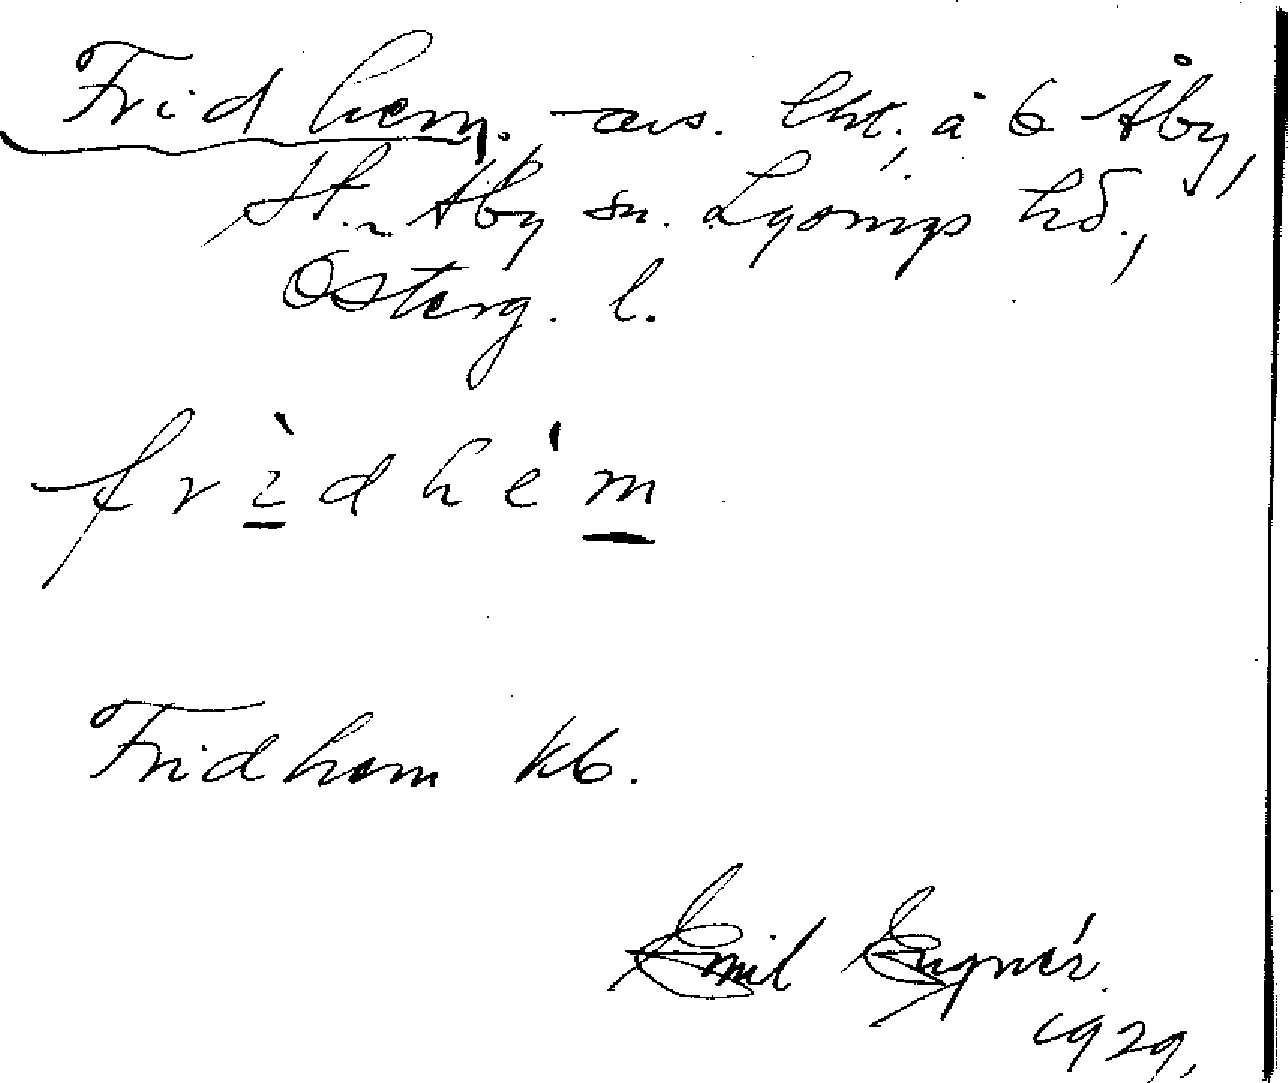 Fridhem. avs. lht. å 6 Åby,
St. Åby sn. Lysings hd.,
Österg. l.
fridhém
Fridhem kb.
Emil Engnér.
1929.